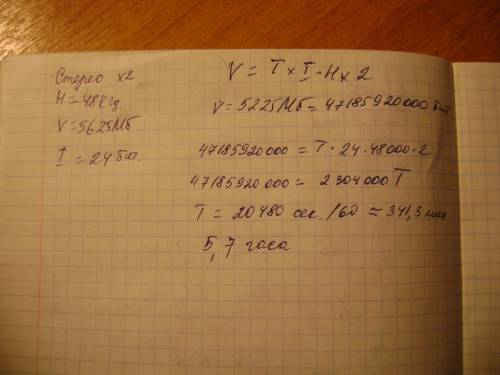 Стерео x2
H = 48 кГц
V = 5625 Мб
I = 24 бит.
V = T × I · H × 2
V = 5225 Мб = 47185920000 бит
47185920000 = T · 24 · 48000 · 2
47185920000 = 2304000 T
T = 20480 сек. /60 ≈ 341,3 мин
5,7 часа